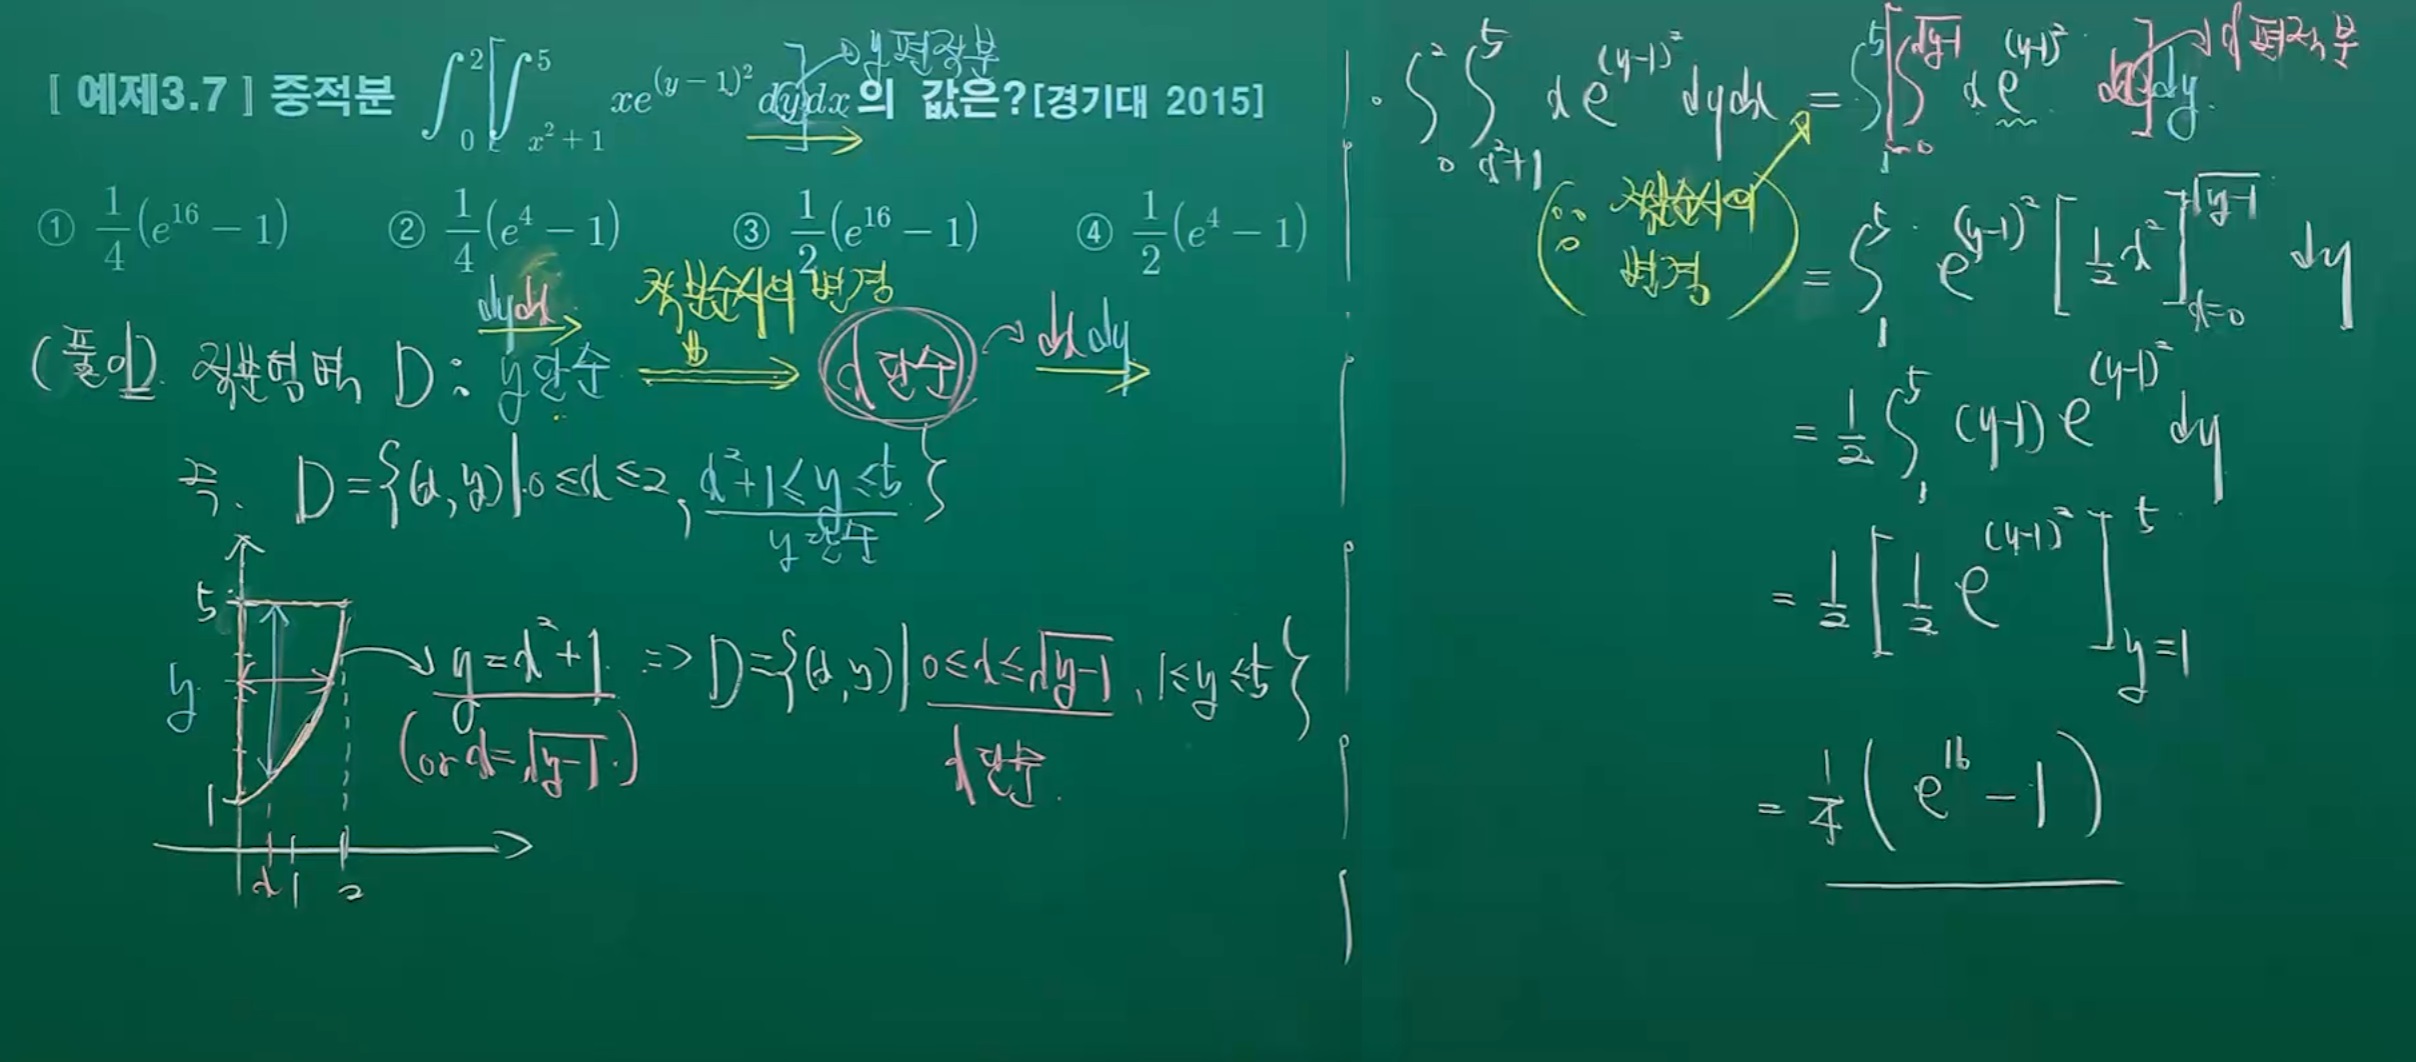 [ 예제3.7 ] 중적분 ∫_0^2 [∫_{x^2+1}^5 xe^{(y-1)^2} dy] dx 의 값은?[경기대 2015]
y편적분
① 1/4(e^{16} - 1) ② 1/4(e^4 - 1) ③ 1/2(e^{16} - 1) ④ 1/2(e^4 - 1)
dydx 적분순서의 변경
(풀이) 적분영역 D : y단순 ⇒ x단순 → dxdy
즉. D = {(x, y) | 0 ≤ x ≤ 2, x^2+1 ≤ y ≤ 5}
y단순
5
y
1
x 1 2
y = x^2+1 ⇒ D = {(x, y) | 0 ≤ x ≤ √(y-1), 1 ≤ y ≤ 5}
(or x = √(y-1).) x단순.
· ∫_0^2 ∫_{x^2+1}^5 x e^{(y-1)^2} dydx = ∫_1^5 [∫_{x=0}^{√(y-1)} x e^{(y-1)^2} dx] dy.
x편적분
(∵ 적분순서의 변경)
= ∫_1^5 e^{(y-1)^2} [1/2 x^2]_{x=0}^{√(y-1)} dy
= 1/2 ∫_1^5 (y-1) e^{(y-1)^2} dy
= 1/2 [1/2 e^{(y-1)^2}]_{y=1}^5
= 1/4 (e^{16} - 1)